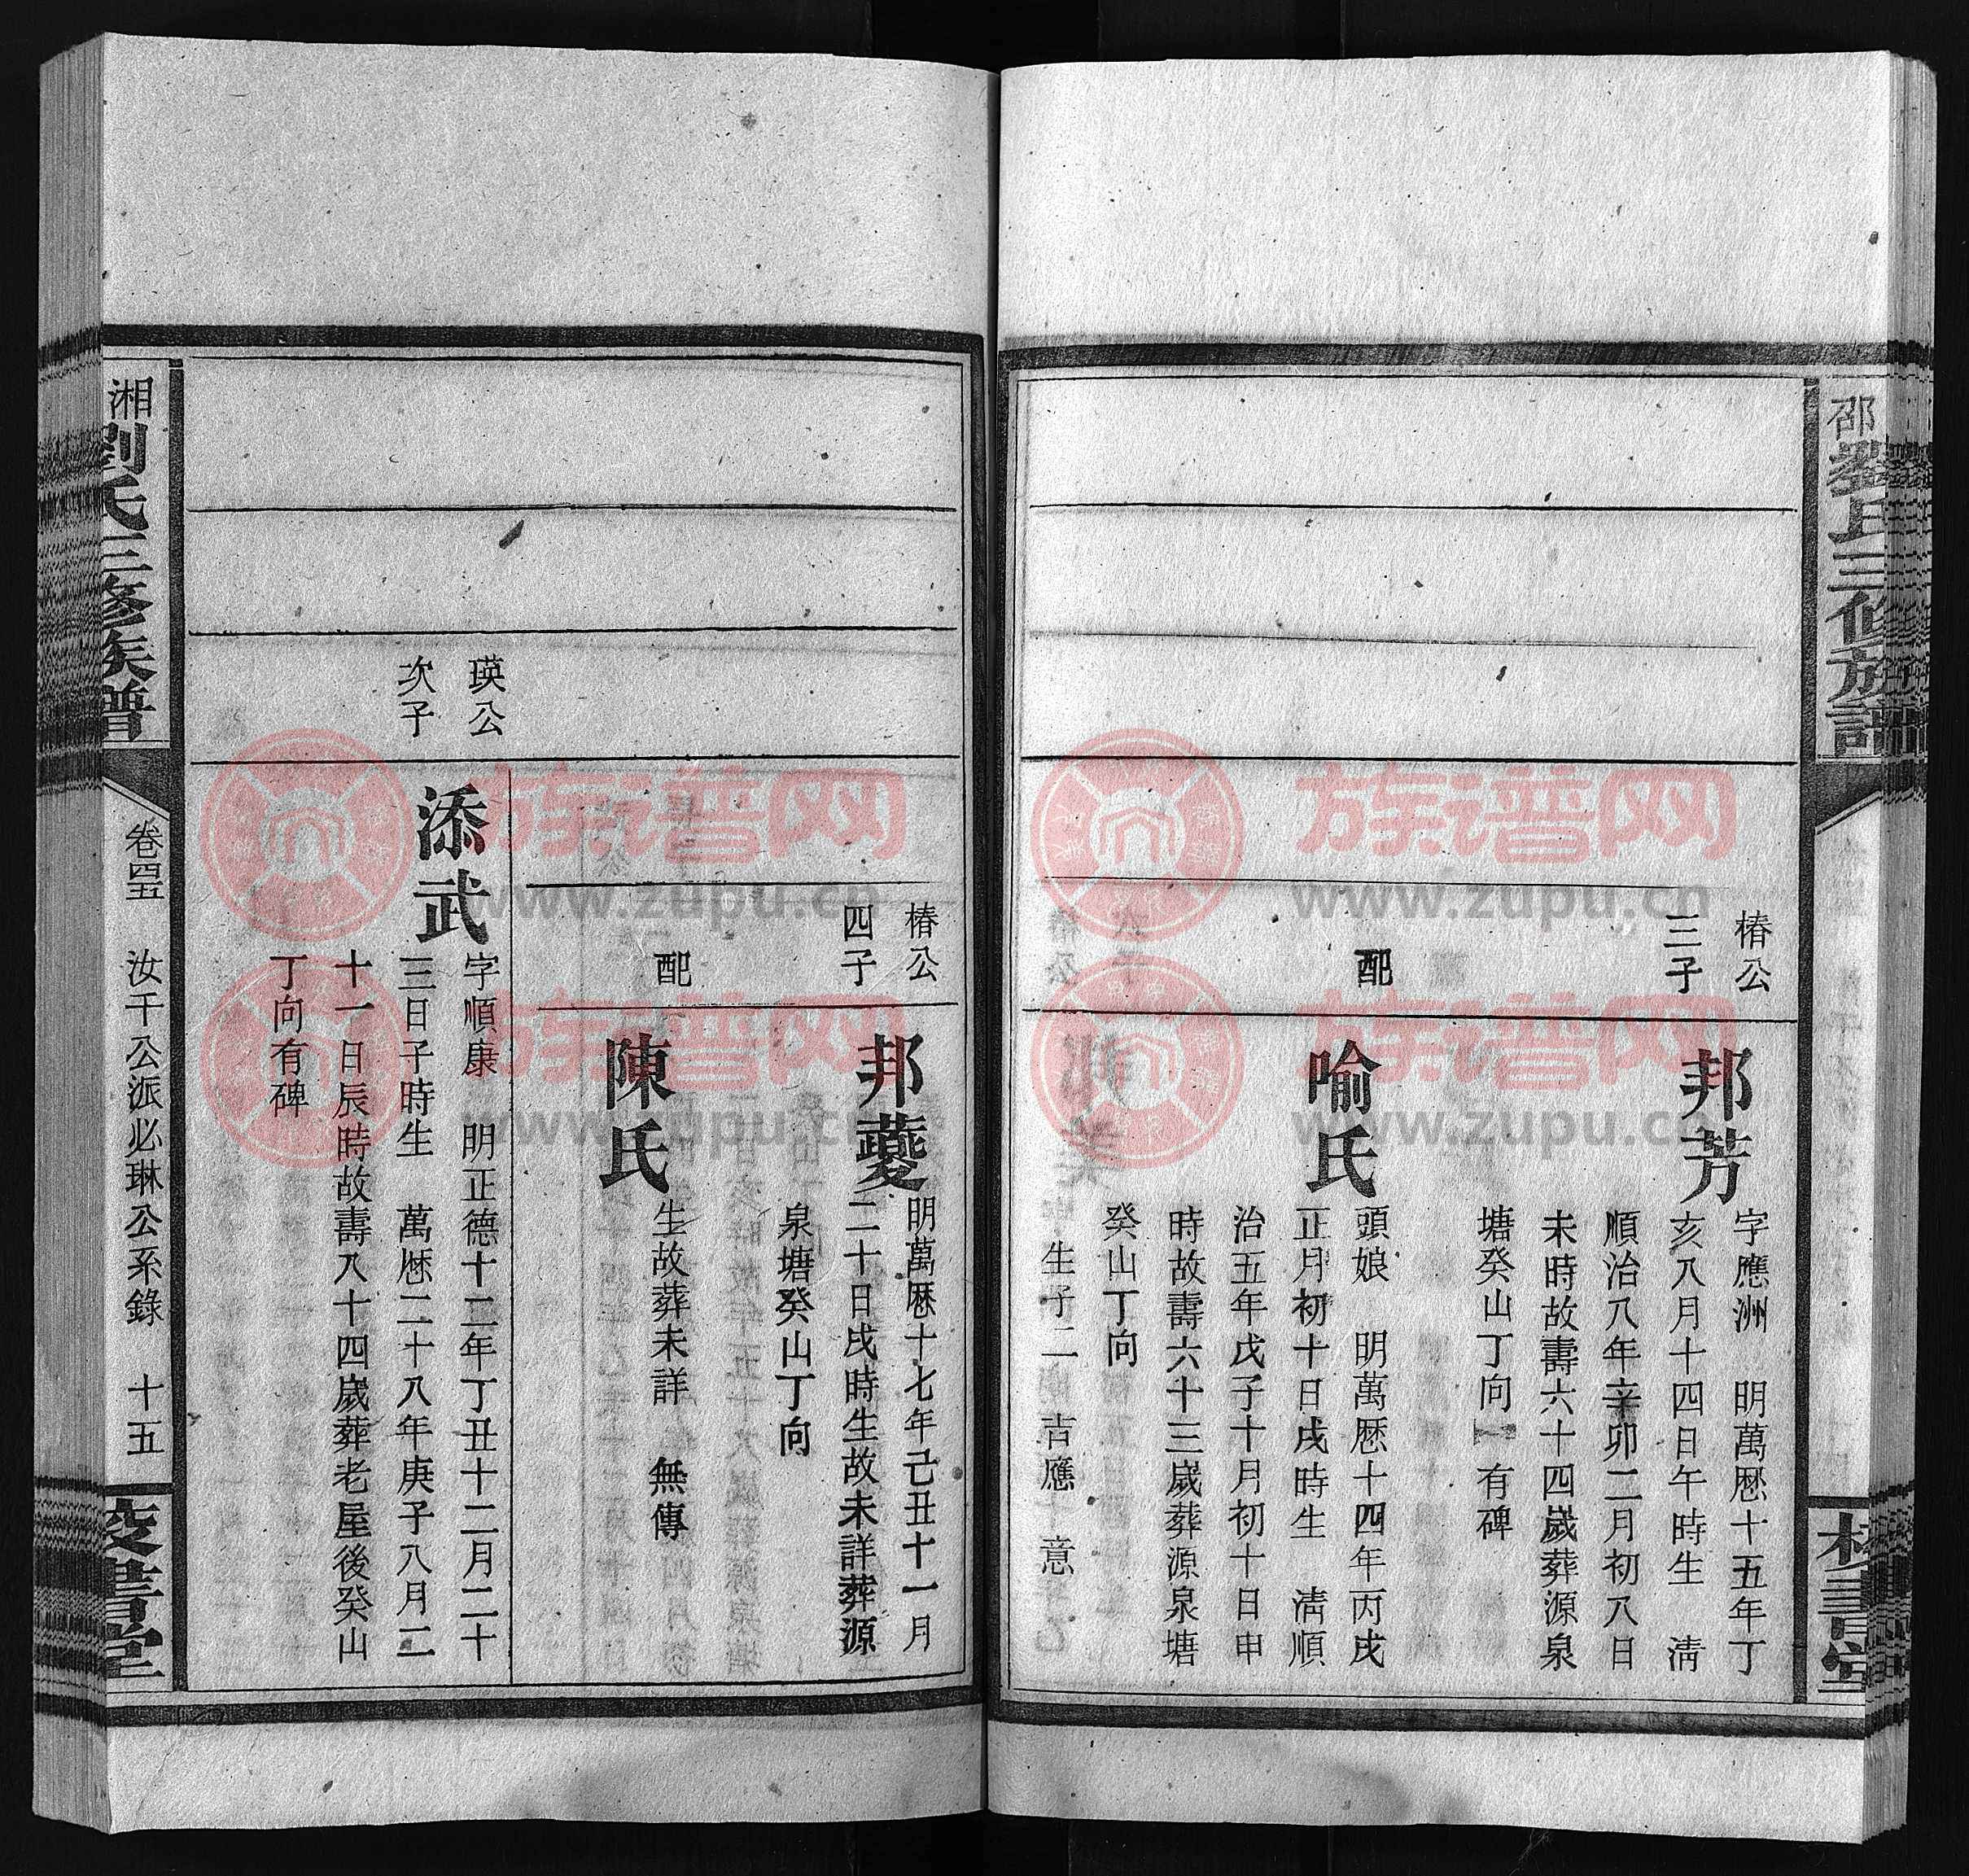 邵
劉氏三修族譜
椿公
三子
邦芳
字應洲 明萬曆十五年丁
亥八月十四日午時生 清
順治八年辛卯二月初八日
未時故壽六十四歲葬源泉
塘癸山丁向 有碑
配
喻氏
頭娘 明萬曆十四年丙戌
正月初十日戌時生 清順
治五年戊子十月初十日申
時故壽六十三歲葬源泉塘
癸山丁向
生子二 吉應 意
椿公
四子
邦夔
明萬曆十七年己丑十一月
二十日戌時生故未詳葬源
泉塘癸山丁向
配
陳氏
生故葬未詳 無傳
瑛公
次子
添武
字順康 明正德十二年丁丑十二月二十
三日子時生 萬曆二十八年庚子八月二
十一日辰時故壽八十四歲葬老屋後癸山
丁向有碑
湘
劉氏三修族譜
卷四五 汝千公派必琳公系錄 十五
書堂
族谱网
www.zupu.cn
族谱网
www.zupu.cn
族谱网
www.zupu.cn
族谱网
www.zupu.cn